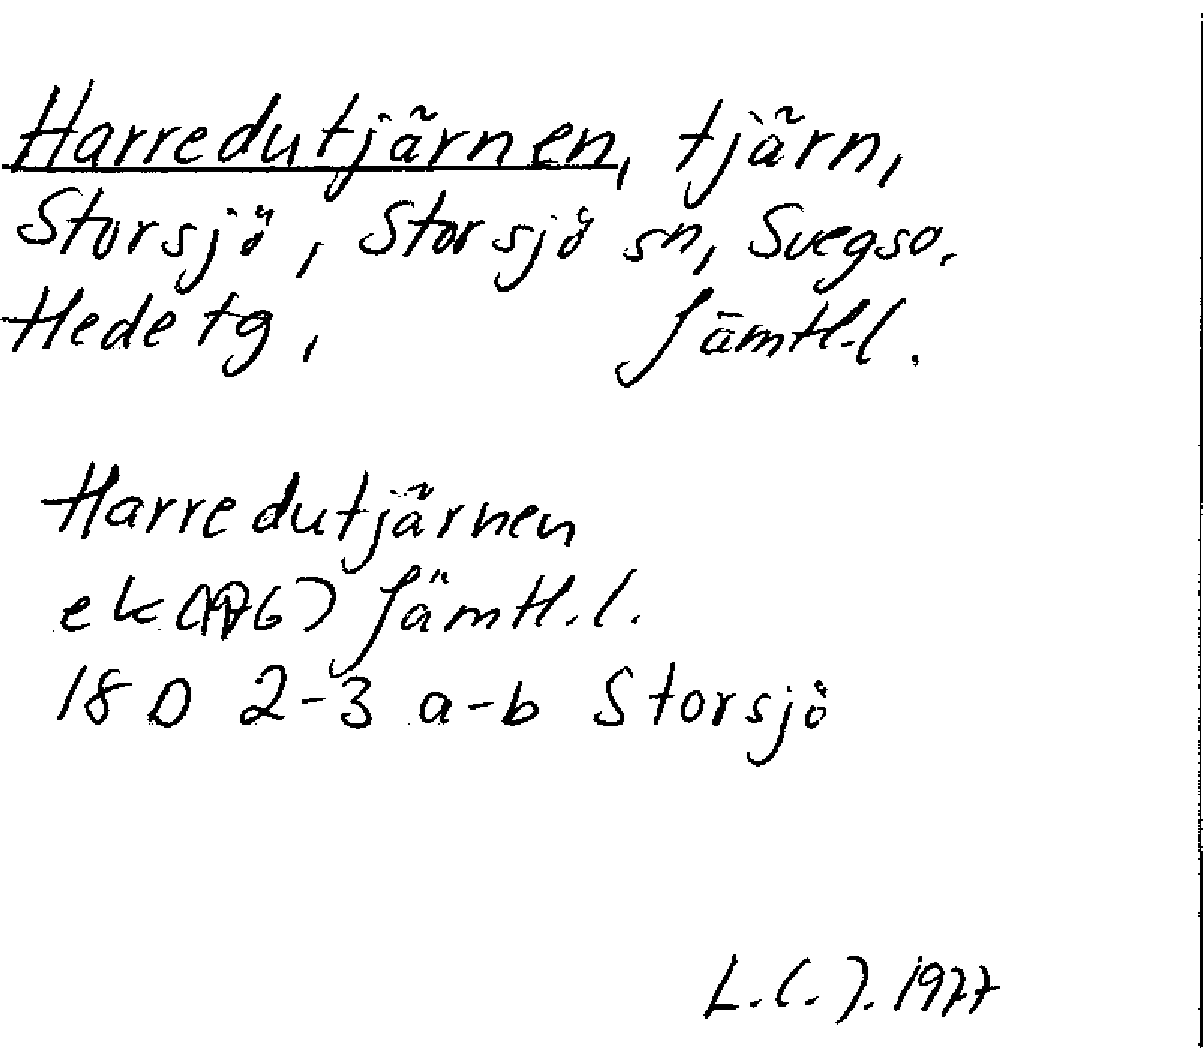 Harredutjärnen, tjärn,
Storsjö, Storsjö sn, Svegso.
Hede tg, Jämtl.l.
Harredutjärnen
ek Jämtl.l.
18 D 2-3 a-b Storsjö
L.(.). 1977